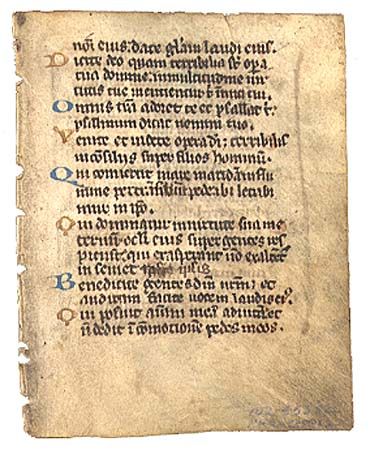 nōi eius: date gl̄am laudi eius.
Dicite deo quam terribilia sūt opera
tua domine: in multitudine uir
tutis tue mentientur t̄ inīci tui.
Omnis t̄ra adoret te et psallat t̄:
psalmum dicat nomini tuo.
Venite et uidete opera dei: terribilis
in cōsiliis super filios hominū.
Qui conuertit mare in aridā in flu
mine pertrāsibūt pede: ibi letabi
mur in ip̄o.
Qui dominatur in uirtute sua in e
ternū: oculi eius super gentes res
piciunt: qui exasperant nō exaltēt
in semet ipsis
Benedicite gentes dm̄ nr̄m: et
auditam facite uocem laudis ei9.
Qui posuit aīam meā ad uitā: et
nō dedit ī cōmotione pedes meos.